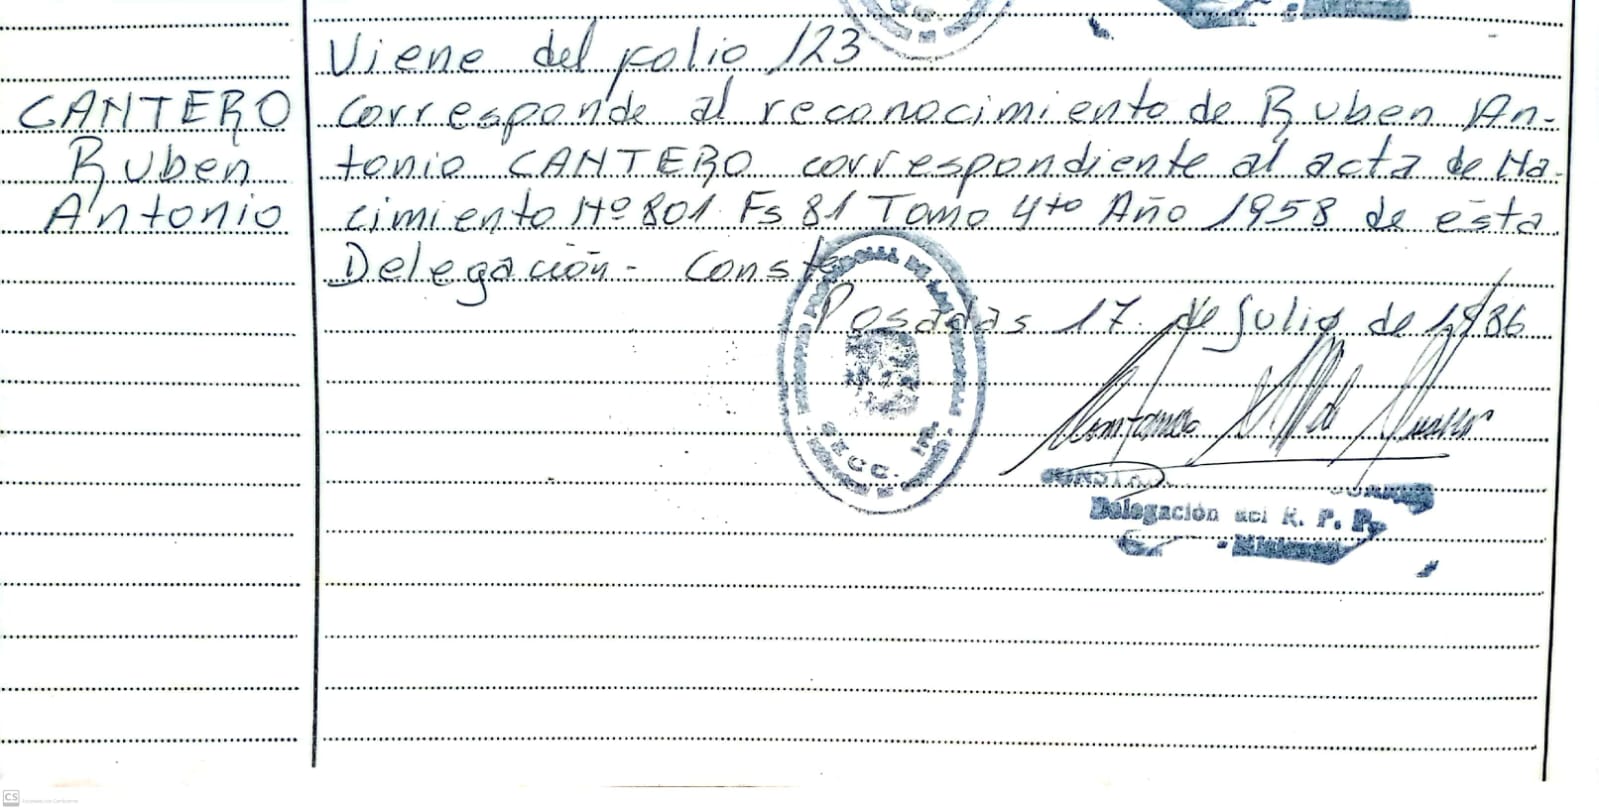 Viene del folio 123
CANTERO
Ruben
Antonio
corresponde al reconocimiento de Ruben An-
tonio CANTERO correspondiente al acta de Na-
cimiento Nº 801 Fs 81 Tomo 4to Año 1958 de esta
Delegación - Conste
Posadas 17 de Julio de 1986
SECC.
Delegación del R. P. P.
CS